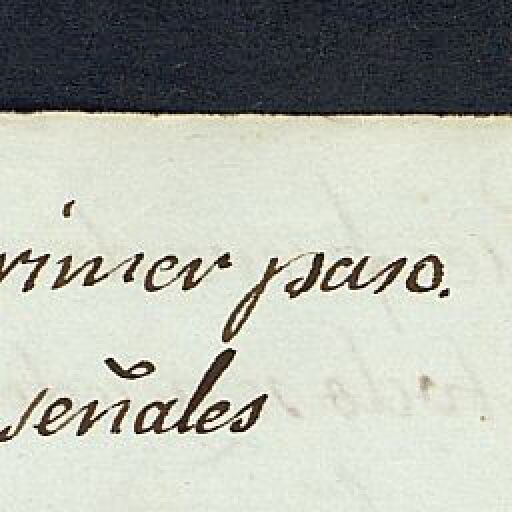 rimer paso.
señales